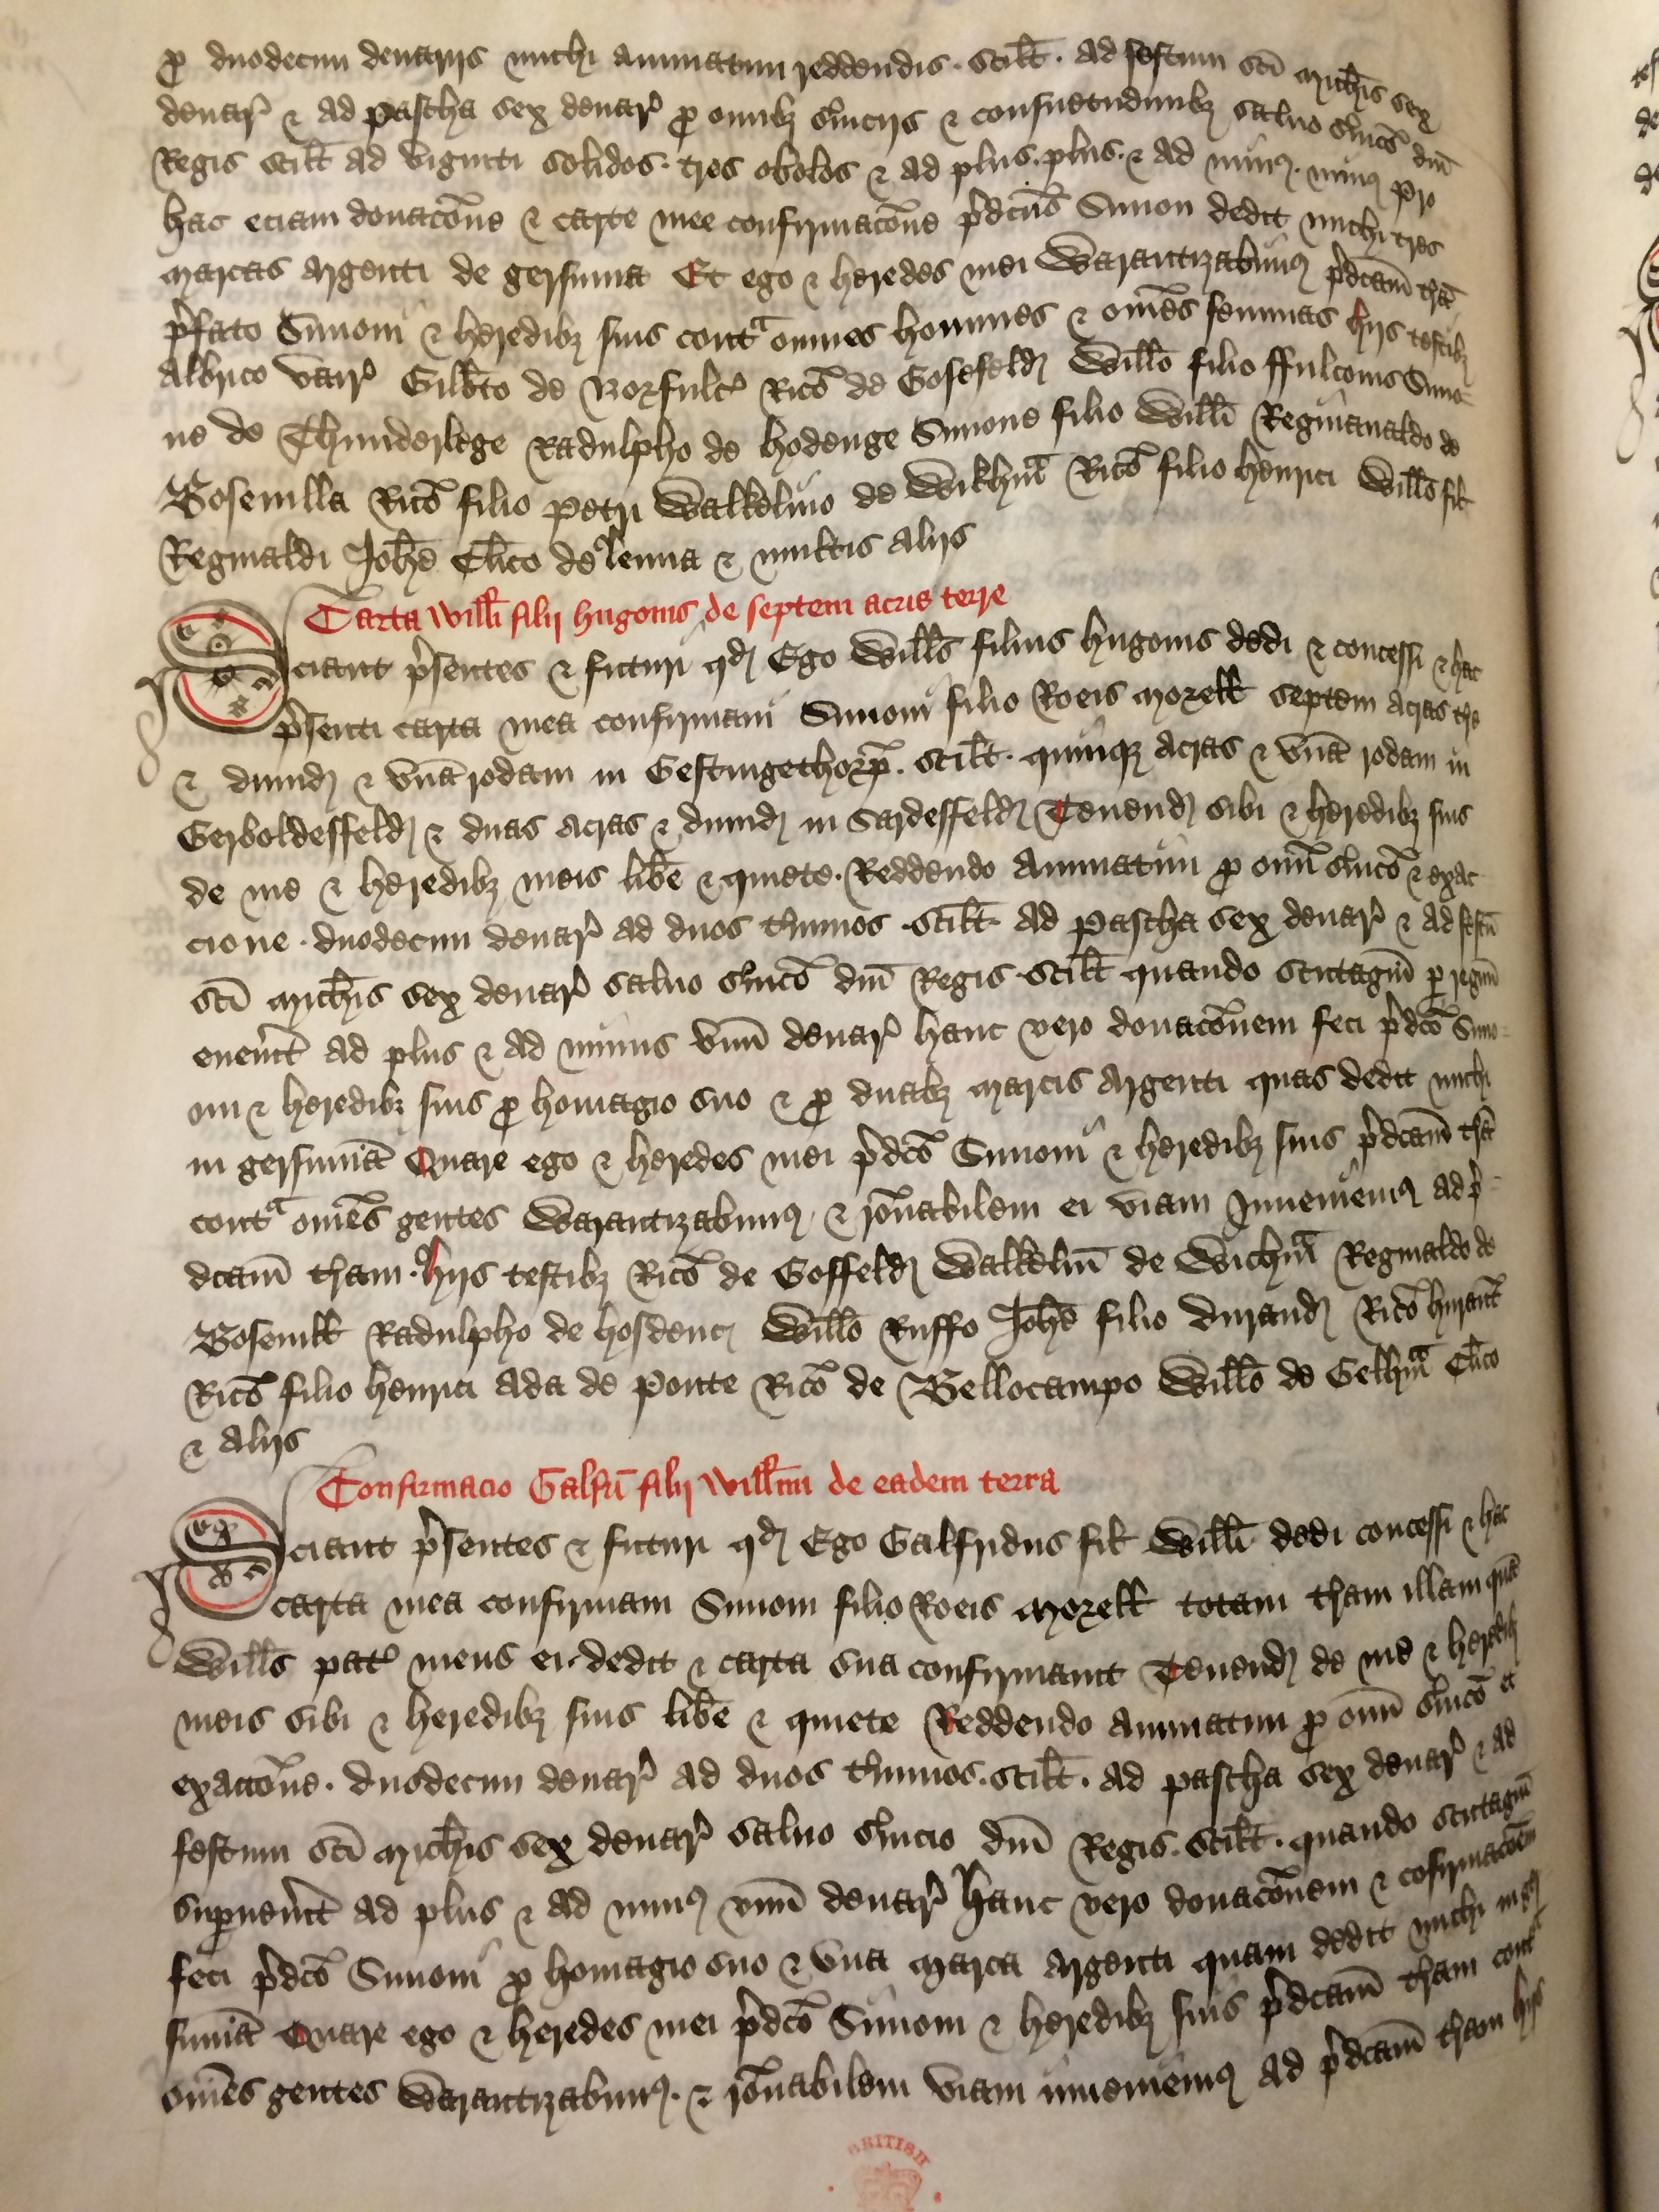 p duodecim denariis michi annuatim reddendis. Scilt. ad festum sci Michis sex
denar & ad pascha sex denar p omnibz s'uiciis & consuetudinibz saluo s'uico dni
Regis scilt ad viginti solidos. tres obolos & ad plus. plus. & ad min9. min9 pro
hac eciam donacone & carte mee confirmacone p'dcus Simon dedit michi tres
marcas argenti de gersuma Et ego & heredes mei Warantizabim9 p'dcam t'ra
p'fato Simoni & heredibz suis cont'a omnes homines & omes feminas hijs testibz
Albrico vair Gilb'to de Norfulc Rico de Gosefeld Willo filio ffulconis Simo
ne de Thunderlege Radulpho de hodenge Simone filio Willi Reginanaldo de
Bosenilla Rico filio Petri Walkelino de Wikhm Rico filio henrici Willo fil
Reginaldi Johe Clico de lenna & multis alijs
Carta Willi filij hugonis de septem acris terre
Sciant p'sentes & futuri qd Ego Wills filius hugonis dedi & concessi & hac
p'senti carta mea confirmaui Simoni filio Roeis Morell septem acras t're
& dimid & vna rodam in Gestingethorp. Scilt. quinqz acras & vna rodam in
Gerboldesffeld & duas acras & dimid in Sardesffeld Tenend sibi & heredibz suis
de me & heredibz meis libe & quiete. Reddendo annuatim p omi s'uico & exac
cione. duodecim denar ad duos t'minos. scilt. ad Pascha sex denar & ad festu
sci Michis sex denar saluo s'uico dni Regis scilt quando scutagm p regnu
euen'it ad plus & ad minus vnu denar hanc vero donaconem feci p'dco Simo
oni & heredibz suis p homagio suo & p duabz marcis argenti quas dedit michi
in gersuma Quare ego & heredes mei p'dco Simoni & heredibz suis p'dcam t'ra
cont'a omes gentes Warantizabim9 & ronabilem ei viam Inueniem9 ad p'
dcam t'ram. hijs testibz Rico de Gosffeld Walkelin de Wichm Reginaldo de
Bosenill Radulpho de hosdenc Willo Ruffo Johe filio durand Rico hurant
Rico filio henrici Ada de Ponte Rico de Bellocampo Willo de Gelhm Clico
& alijs
Confirmacio Galfri filij Willmi de eadem terra
Sciant p'sentes & futuri qd Ego Galfridus fil Willi dedi concessi & hac
carta mea confirmaui Simoni filio Roeis Morell totam t'ram illam qua
Wills pat' meus ei dedit & carta sua confirmauit Tenend de me & heredibz
meis sibi & heredibz suis libe & quiete Reddendo annuatim p omi s'uico et
exaccone. duodecim denar ad duos t'minos. scilt. ad pascha sex denar & ad
festum sci Michis sex denar saluo s'uicio dni Regis. scilt. quando scutagm
supuen'it ad plus & ad min9 vnu denar hanc vero donaconem & cofirmacoem
feci p'dco Simoni p homagio suo & vna marca argenti quam dedit michi in ger
suma Quare ego & heredes mei p'dco Simoni & heredibz suis p'dcam t'ram cont'
omes gentes Warantizabim9. & ronabilem viam inueniem9 ad p'dcam t'ram hijs
BRITISH